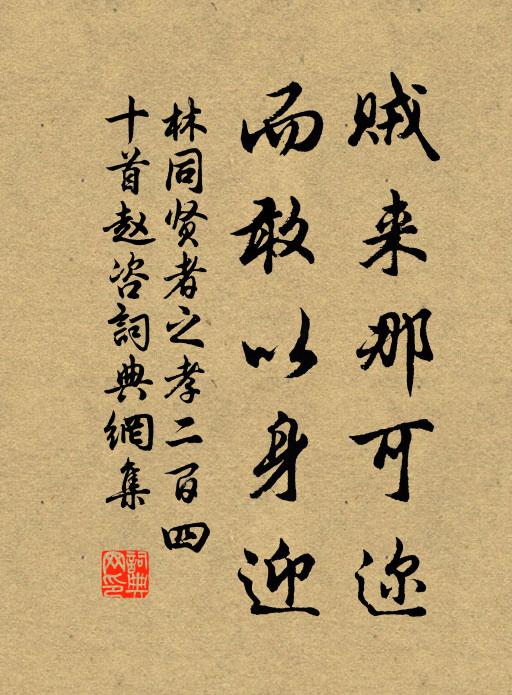 贼来那可迩
而敢以身迎
林同贤者之孝二百四
十首赵咨詞典網集
詞典網印